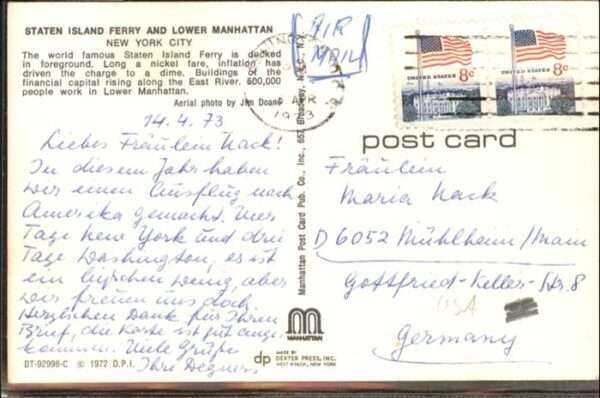 STATEN ISLAND FERRY AND LOWER MANHATTAN
NEW YORK CITY
The world famous Staten Island Ferry is decked
in foreground. Long a nickel fare, inflation has
driven the charge to a dime. Buildings of the
financial capital rising along the East River. 600,000
people work in Lower Manhattan.
Aerial photo by Jim Doane
14.4.73
Liebes Fräulein Nack!
In diesem Jahr haben
wir einen Ausflug nach
Amerika gemacht. Vier
Tage New York und drei
Tage Washington, es ist
ein bißchen wenig, aber
wir freuen uns doch.
Herzlichen Dank für Ihren
Brief, die Karte ist gut ange-
kommen. Viele Grüße
Ihre
DT-92998-C © 1972 D.P.I.
AIR
MAIL
1973
UNITED STATES 8c
UNITED STATES 8c
Manhattan Post Card Pub. Co., Inc., 657 Broadway, N.Y.C., N.Y.
MANHATTAN
dp
MADE BY
DEXTER PRESS, INC.
WEST NYACK, NEW YORK
post card
Fräulein
Maria Nack
D 6052 Mühlheim/Main
Gottfried-Keller-Str. 8
USA
Germany